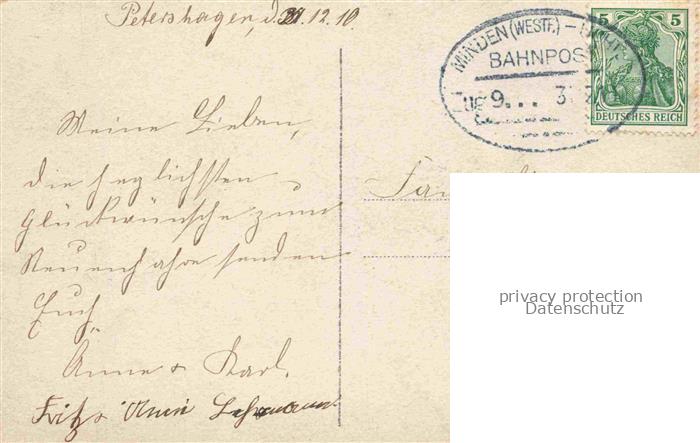 Petershagen, d. 31.12.10
Meine Lieben,
die herzlichsten
Glückwünsche zum
Neuenjahre senden
Euch
Anne + Karl.
Fritz + Lehmann
MINDEN (WESTF.) –
BAHNPOST
ZUG 9... 31.12.
5 5
DEUTSCHES REICH
privacy protection
Datenschutz